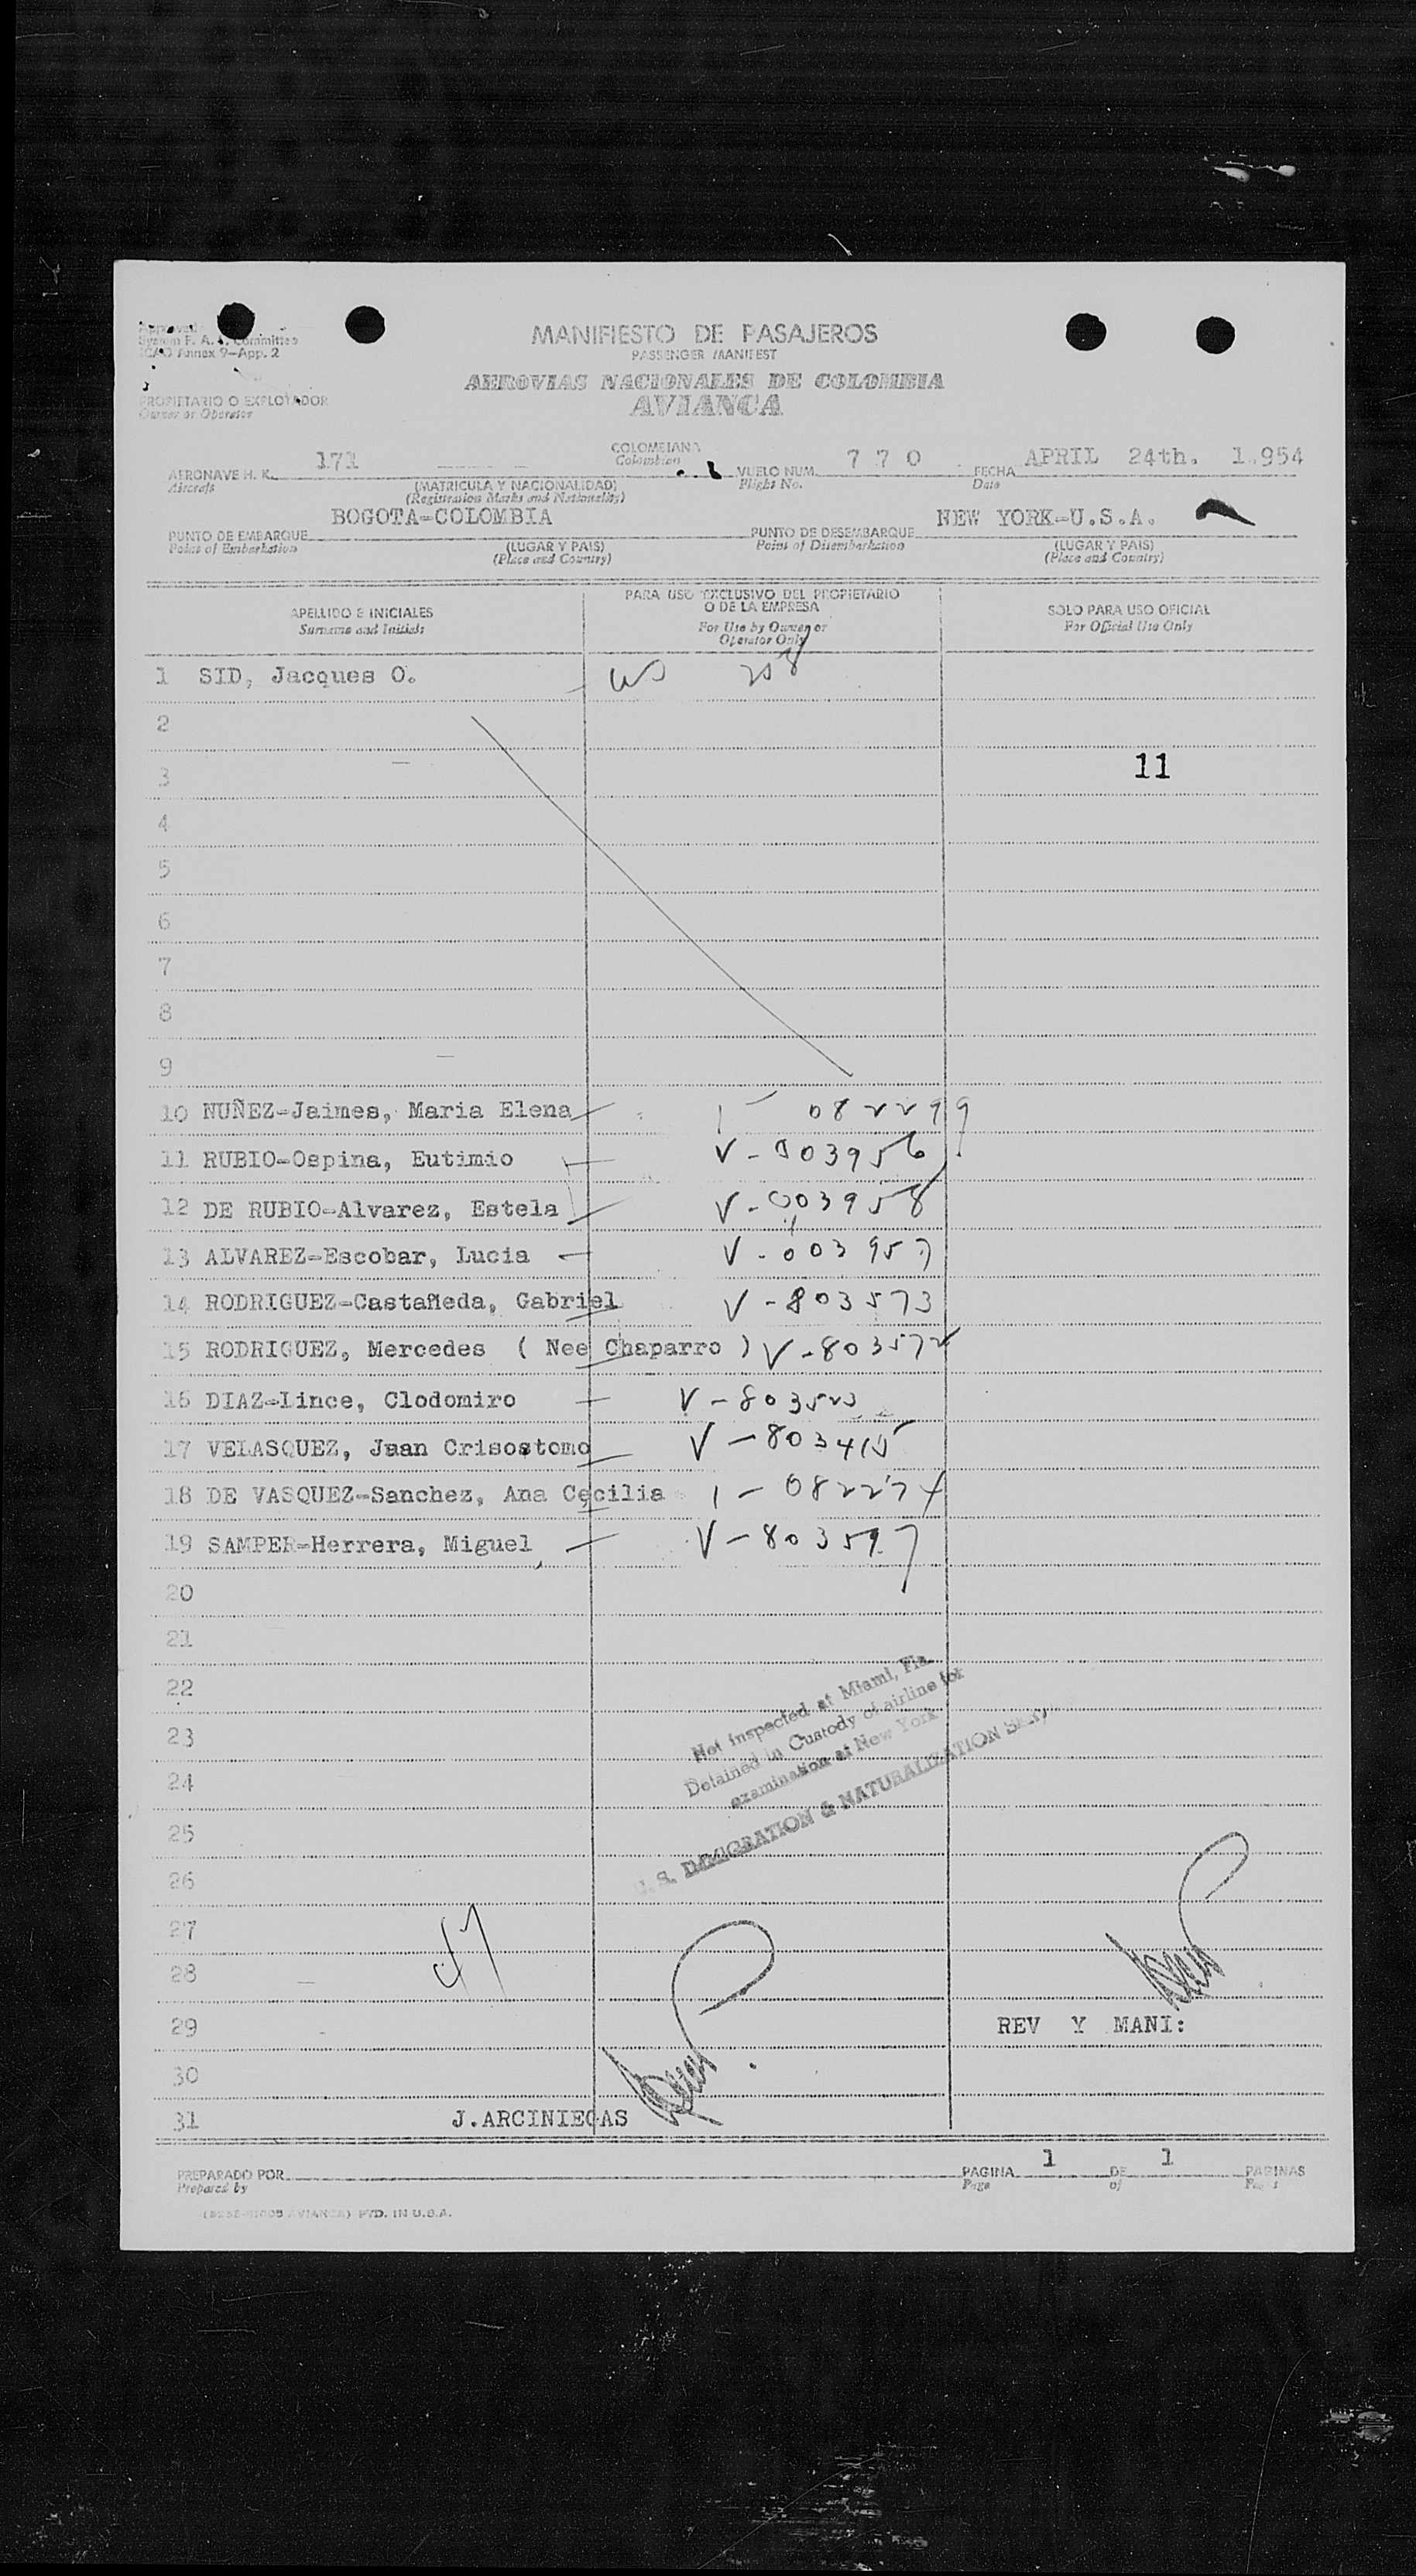 Approved
System F. A. L. Committee
ICAO Annex 9-App. 2
MANIFIESTO DE PASAJEROS
PASSENGER MANIFEST
AEROVIAS NACIONALES DE COLOMBIA
AVIANCA
PROPIETARIO O EXPLOTADOR
Owner or Operator
AERONAVE H. K. 171 COLOMBIANA VUELO NUM. 7 7 0 FECHA APRIL 24th. 1.954
Aircraft (MATRICULA Y NACIONALIDAD) Colombian Flight No. Date
(Registration Marks and Nationality)
PUNTO DE EMBARQUE BOGOTA-COLOMBIA PUNTO DE DESEMBARQUE NEW YORK-U.S.A.
Point of Embarkation (LUGAR Y PAIS) Point of Disembarkation (LUGAR Y PAIS)
(Place and Country) (Place and Country)
APELLIDO E INICIALES PARA USO EXCLUSIVO DEL PROPIETARIO SOLO PARA USO OFICIAL
Surname and Initials O DE LA EMPRESA For Official Use Only
For Use by Owner or
Operator Only
1 SID, Jacques O.
2
3 11
4
5
6
7
8
9
10 NUÑEZ-Jaimes, Maria Elena 1 - 082299
11 RUBIO-Ospina, Eutimio V-003956
12 DE RUBIO-Alvarez, Estela V-003958
13 ALVAREZ-Escobar, Lucia V-003957
14 RODRIGUEZ-Castañeda, Gabriel V-803573
15 RODRIGUEZ, Mercedes ( Nee Chaparro ) V-803572
16 DIAZ-Lince, Clodomiro V-803523
17 VELASQUEZ, Juan Crisostomo V-803415
18 DE VASQUEZ-Sanchez, Ana Cecilia 1-082274
19 SAMPER-Herrera, Miguel V-803597
20
21
22
23
24
25
26
27
28
29 REV Y MANI:
30
31 J.ARCINIEGAS
Not inspected at Miami, Fla.
Detained in Custody of airline for
examination at New York
U. S. IMMIGRATION & NATURALIZATION SERV
PREPARADO POR PAGINA 1 DE 1 PAGINAS
Prepared by Page of Pages
AVIANCA) PTD. IN U.S.A.